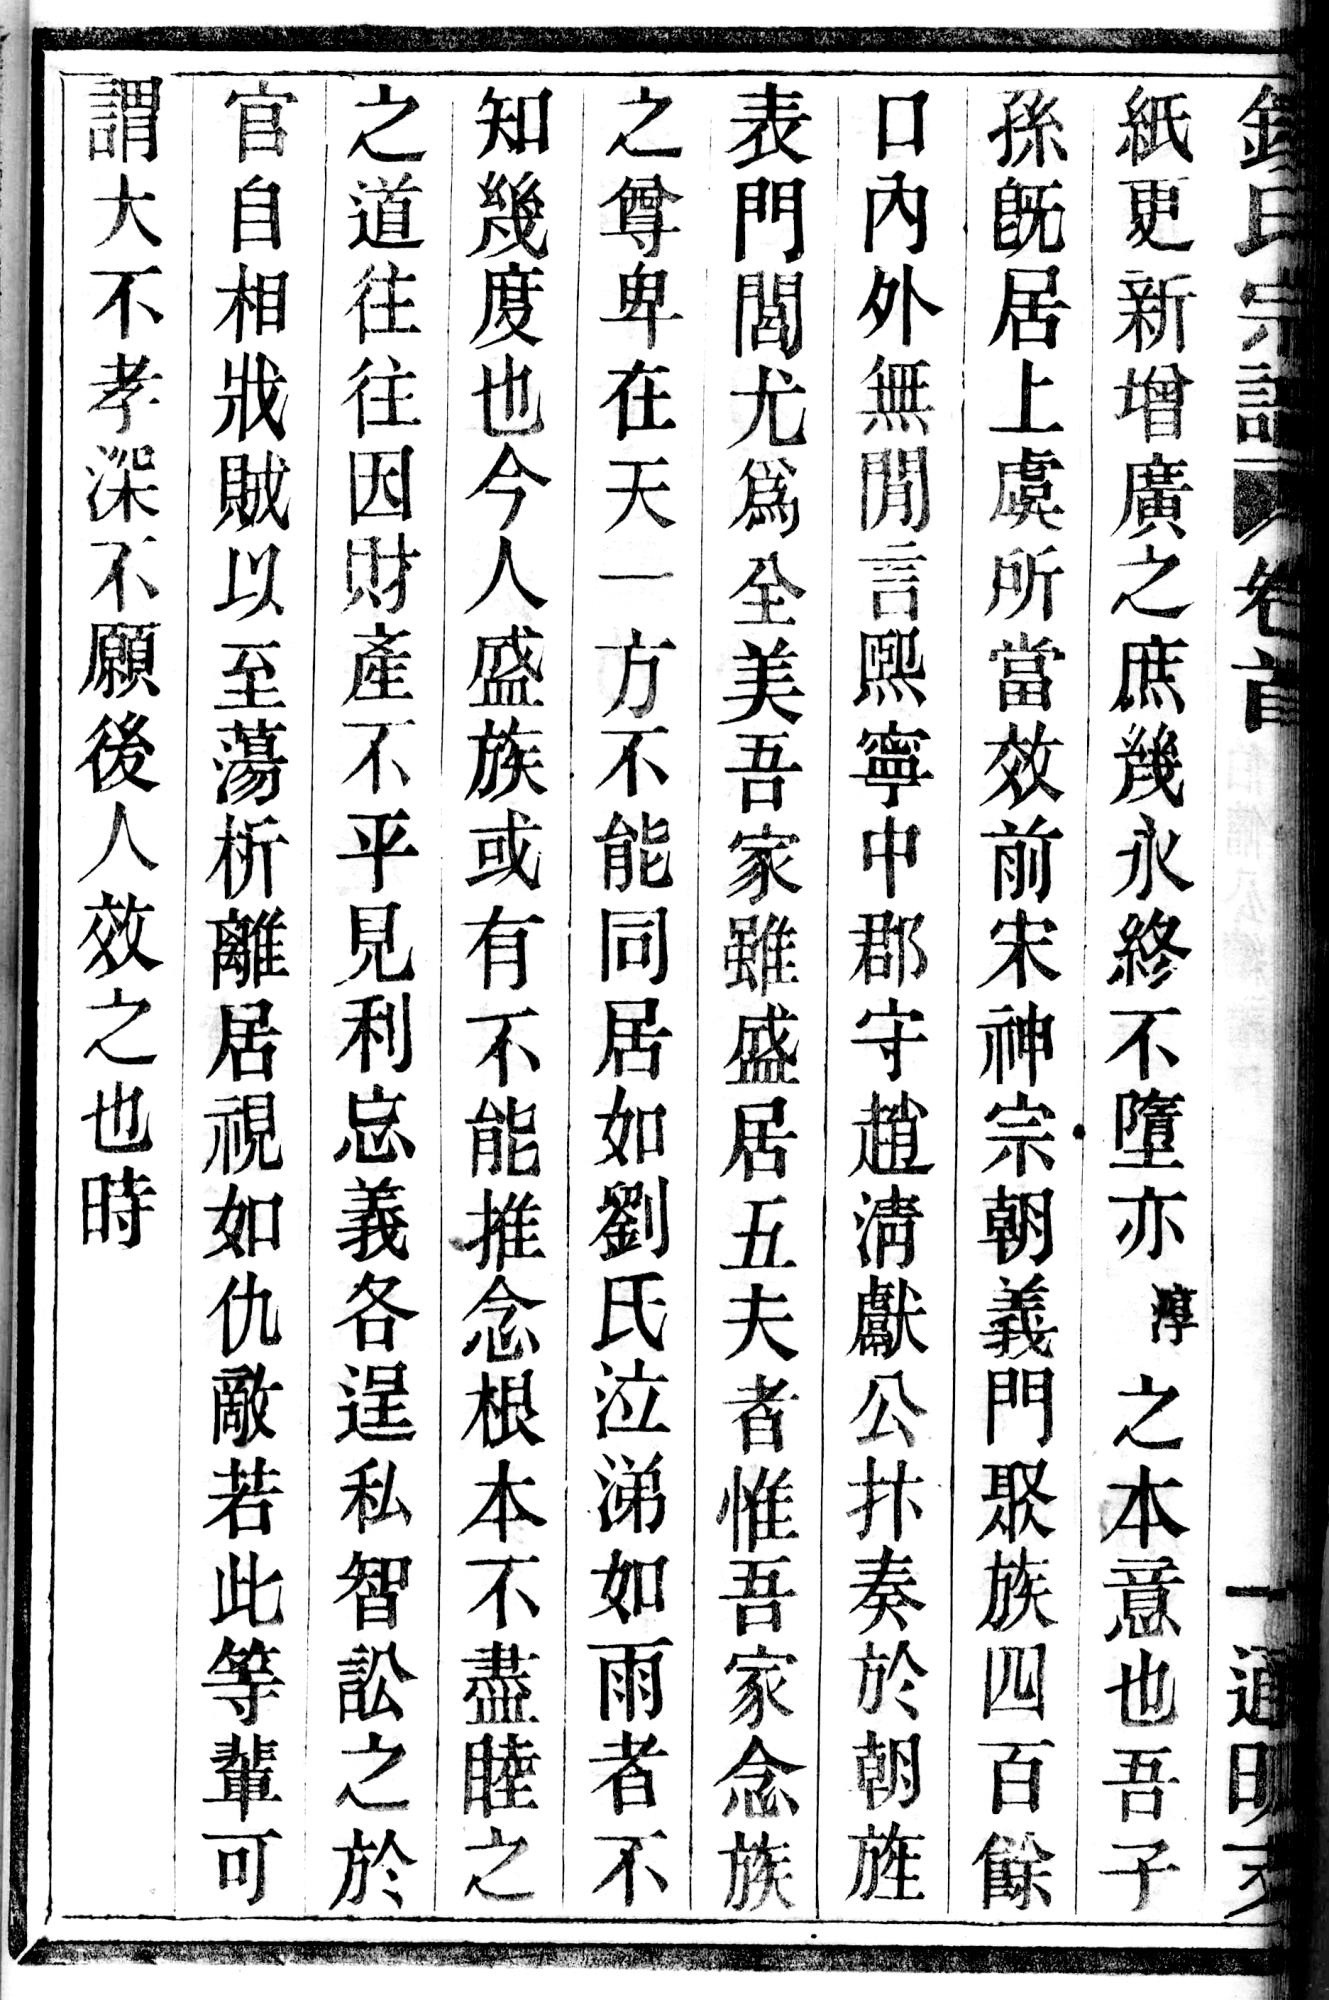 氏宗譜 卷首 一 通明支
紙更新增廣之庶幾永終不墮亦淳之本意也吾子
孫旣居上虞所當效前宋神宗朝義門聚族四百餘
口內外無閒言熙寧中郡守趙淸獻公抃奏於朝旌
表門閭尤爲全美吾家雖盛居五夫者惟吾家念族
之尊卑在天一方不能同居如劉氏泣涕如雨者不
知幾度也今人盛族或有不能推念根本不盡睦之
之道往往因財產不平見利忘義各逞私智訟之於
官自相戕賊以至蕩析離居視如仇敵若此等輩可
謂大不孝深不願後人效之也時